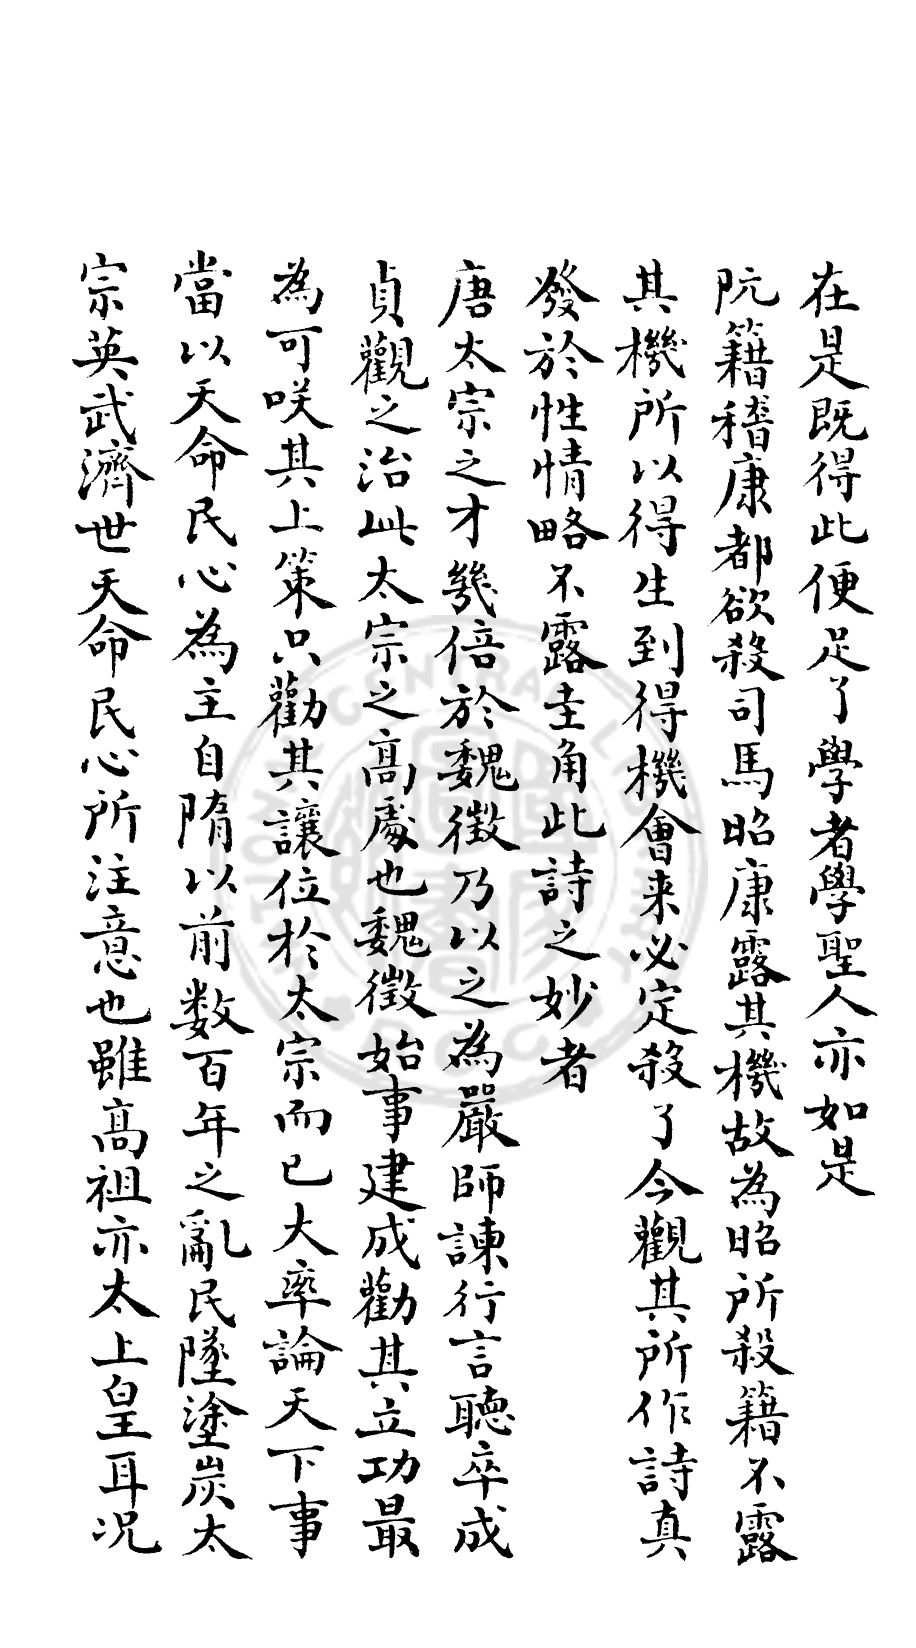 在是既得此便足了學者學聖人亦如是
阮籍稽康都欲殺司馬昭康露其機故為昭所殺籍不露
其機所以得生到得機會来必定殺了今觀其所作詩真
發於性情略不露圭角此詩之妙者
唐太宗之才幾倍於魏徵乃以之為嚴師諫行言聽卒成
貞觀之治此太宗之高處也魏徵始事建成勸其立功最
為可咲其上策只勸其讓位於太宗而已大率論天下事
當以天命民心為主自隋以前数百年之亂民墜塗炭太
宗英武濟世天命民心所注意也雖高祖亦太上皇耳况
CENTRAL